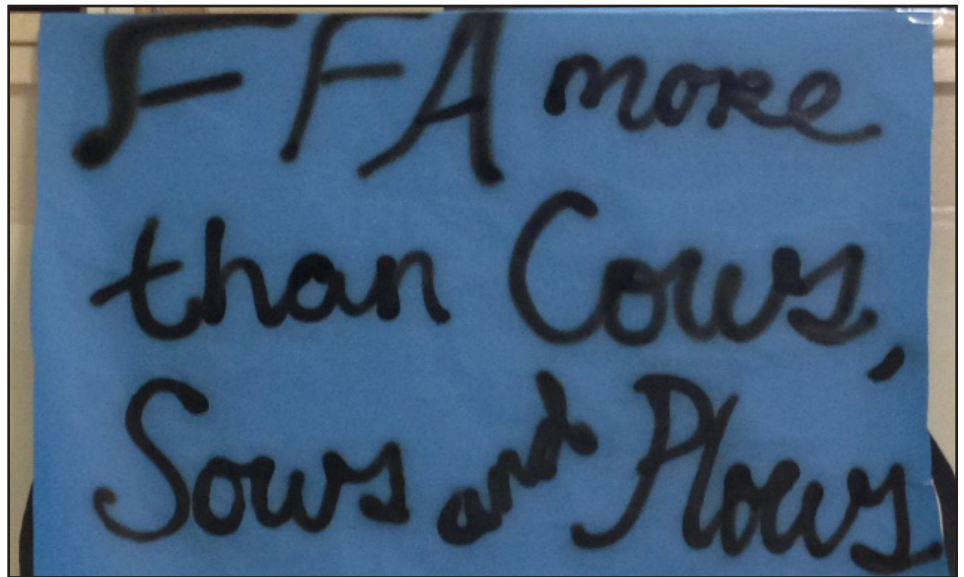 FFA more
than Cows,
Sows and Plows